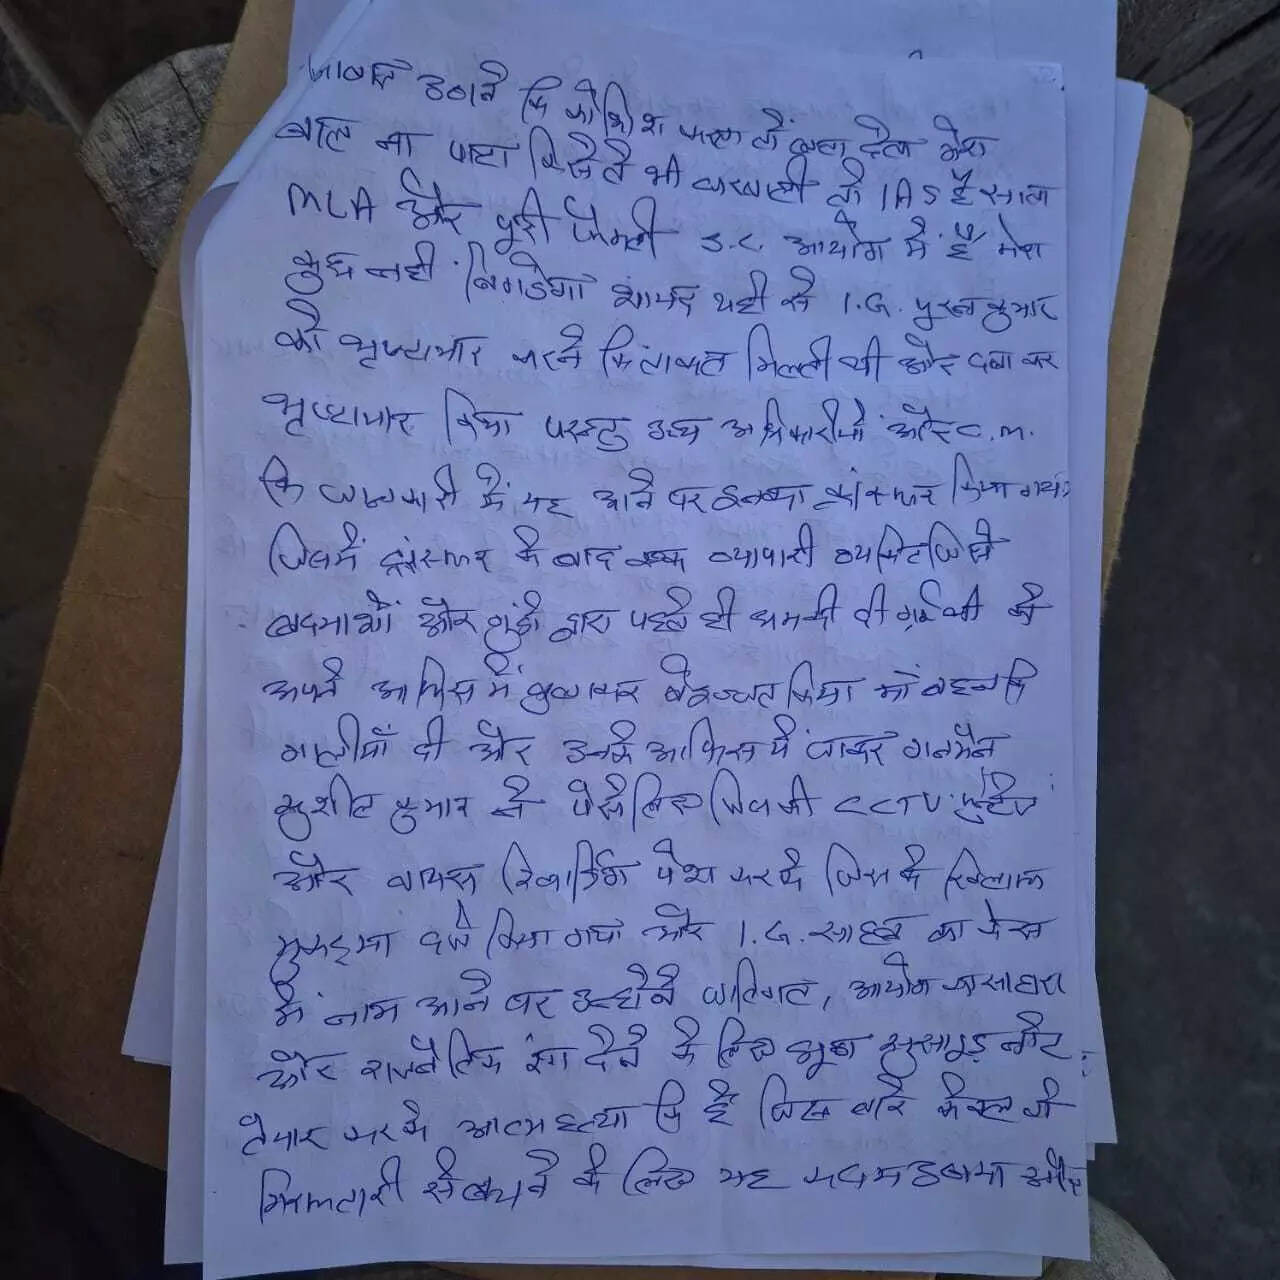 आवाज उठाने कि कोशिश करता तो कहा देता मेरा
बाल ना पाटा किसी ने भी घरवाली तो IAS है साला
MLA और पूरी फैमली S.C. आयोग में है मेरा
कुछ नही बिगडेगा शायद यही से I.G. पुरन कुमार
को भ्रष्टाचार करने कि ताकत मिलती थी और दबा कर
भ्रष्टाचार किया परन्तु उच्च अधिकारीयों और C.M.
कि जानकारी में यह आने पर इनका ट्रांसफर किया गया
जिसमें ट्रांसफर के बाद एक व्यापारी व्यक्ति जिसे
बदमाशों और गुंडो द्वारा पहले ही धमकी दी गई थी को
अपने आफिस में बुलाकर बेइज्जत किया माँ बहन कि
गालीयाँ दी और उनके आफिस में जाकर गनमैन
सुशील कुमार ने पैसे लिए जिसकी CCTV फुटेज
और वायस रिकार्डिंग पेश करके जिसके खिलाफ
मुकदमा दर्ज किया गया और I.G. साहब का केस
में नाम आने पर उन्होने जातिगत, आयोग का सहारा
और राजनैतिक रंग देने के लिए झूठा सुसाइड नोट
तैयार करके आत्महत्या कि है जिस बारे केस की
गिरफ्तारी से बचने के लिए यह कदम उठाया और